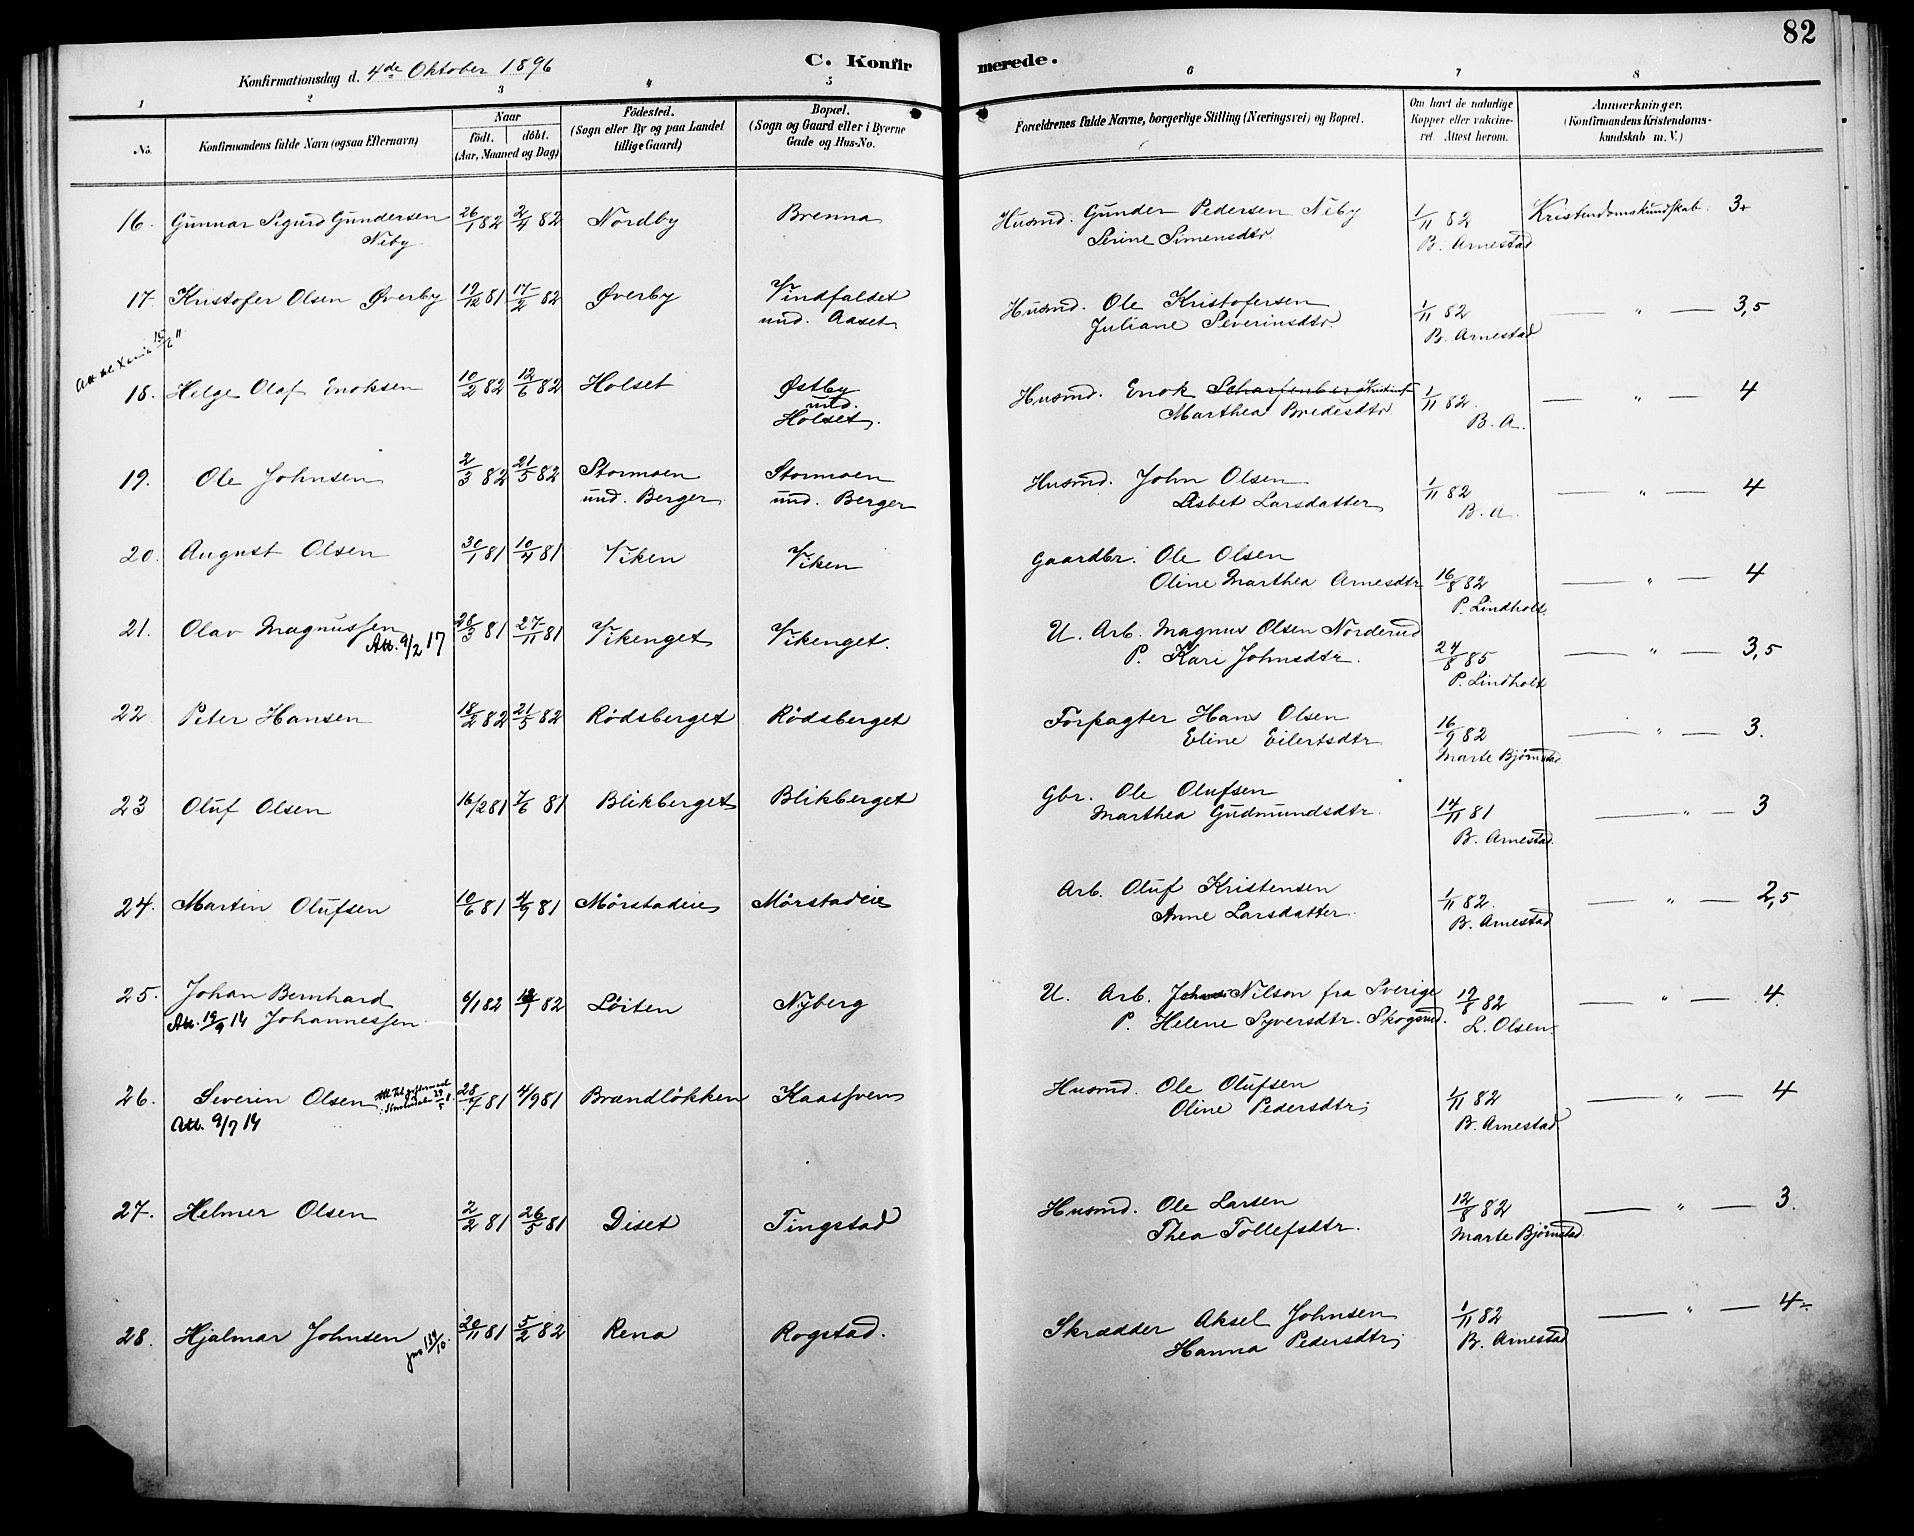 82
Konfirmationsdag d. 4de Oktober 1896
C. Konfirmerede.
1 2 3 4 5 6 7 8
No.
Konfirmandens fulde Navn (ogsaa Efternavn)
Naar
födt. döbt.
(Aar, Maaned og Dag)
Födested.
(Sogn eller By og paa Landet
tillige Gaard)
Bopæl.
(Sogn og Gaard eller i Byerne
Gade og Hus-No.
Forældrenes fulde Navne, borgerlige Stilling (Næringsvei) og Bopæl.
Om havt de naturlige
Kopper eller vakcine-
ret. Attest herom.
Anmærkninger.
(Konfirmandens Kristendoms-
kundskab m. V.)
16. Gunnar Sigurd Gundersen 26/1 82 2/4 82 Nordby Brenna Husmd. Gunder Pedersen Neby 1/11 82 Kristendomskundskab. 3+
Neby Serine Simensdtr. B. Arnestad
17. Kristofer Olsen Øverby 19/12 81 17/2 82 Øverby Vindfaldet Husmd. Ole Kristofersen 1/11 82 — " — 3,5
und. Aaset Juliane Severinsdtr. B. Arnestad
15/2 11
18. Helge Olaf Enoksen 10/2 82 12/6 82 Holset Østby Husmd. Enok 1/11 82. — " — 4
und. Marthea Bredesdtr B. A.
Holset.
19. Ole Johnsen 2/3 82 21/5 82 Stormoen Stormoen Husmd. John Olsen 1/11 82 — " — 4
und. Berger und. Berger Lisbet Larsdatter B. A.
20. August Olsen 30/1 81 10/4 81 Viken Viken Gaardbr. Ole Olsen
Oline Marthea Arnesdtr 16/8 82 — " — 4
P. Lindholt.
21. Olav Magnussen 28/3 81 27/11 81 Vikenget Vikenget. U. Arb. Magnus Olsen Norderud
Att. 9/2 17 P. Kari Johnsdtr. 24/8 85 — " — 3,5
P. Lindholt
22 Peter Hansen 18/2 82 21/5 82 Rödsberget Rödsberget Forpagter Hans Olsen 16/9 82 — " — 3.
Eline Eilertsdtr Marte Bjørnstad
23 Oluf Olsen 16/2 81 7/6 81 Blikberget Blikberget Gbr. Ole Olufsen 14/11 81 — " — 3
Marthea Gudmundsdtr. B. Arnestad.
24. Martin Olufsen 10/6 81 4/9 81 Mörstadeie Mörstadeie Arb. Oluf Kristensen 1/11 82. — " — 2,5
Anne Larsdatter. B. Arnestad
25. Johan Bernhard 6/1 82 82 Löiten Nyberg U. Arb. Nilson fra Sverige 19/8 82 — " — 4
Att. 19/9 14 Johannessen. P. Helene Syversdtr. Skogsrud. L. Olsen.
26. Severin Olsen 28/7 81 4/9 81 Brændlökken Kaassven Husmd. Ole Olufsen 1/11 82 — " — 4
Att. 9/7 14 Oline Pedersdtr; B. Arnestad.
27. Helmer Olsen 2/2 81 26/5 81 Diset Tingstad Husmd. Ole Larsen 12/8 82 — " — 3.
Thea Tollefsdtr. Marte Bjørnstad.
28. Hjalmar Johnsen 20/11 81 5/2 82 Rena Rogstad. Skrædder Aksel Johnsen 1/11 82 — " — 4÷
Hanna Pedersdtr; B. Arnestad